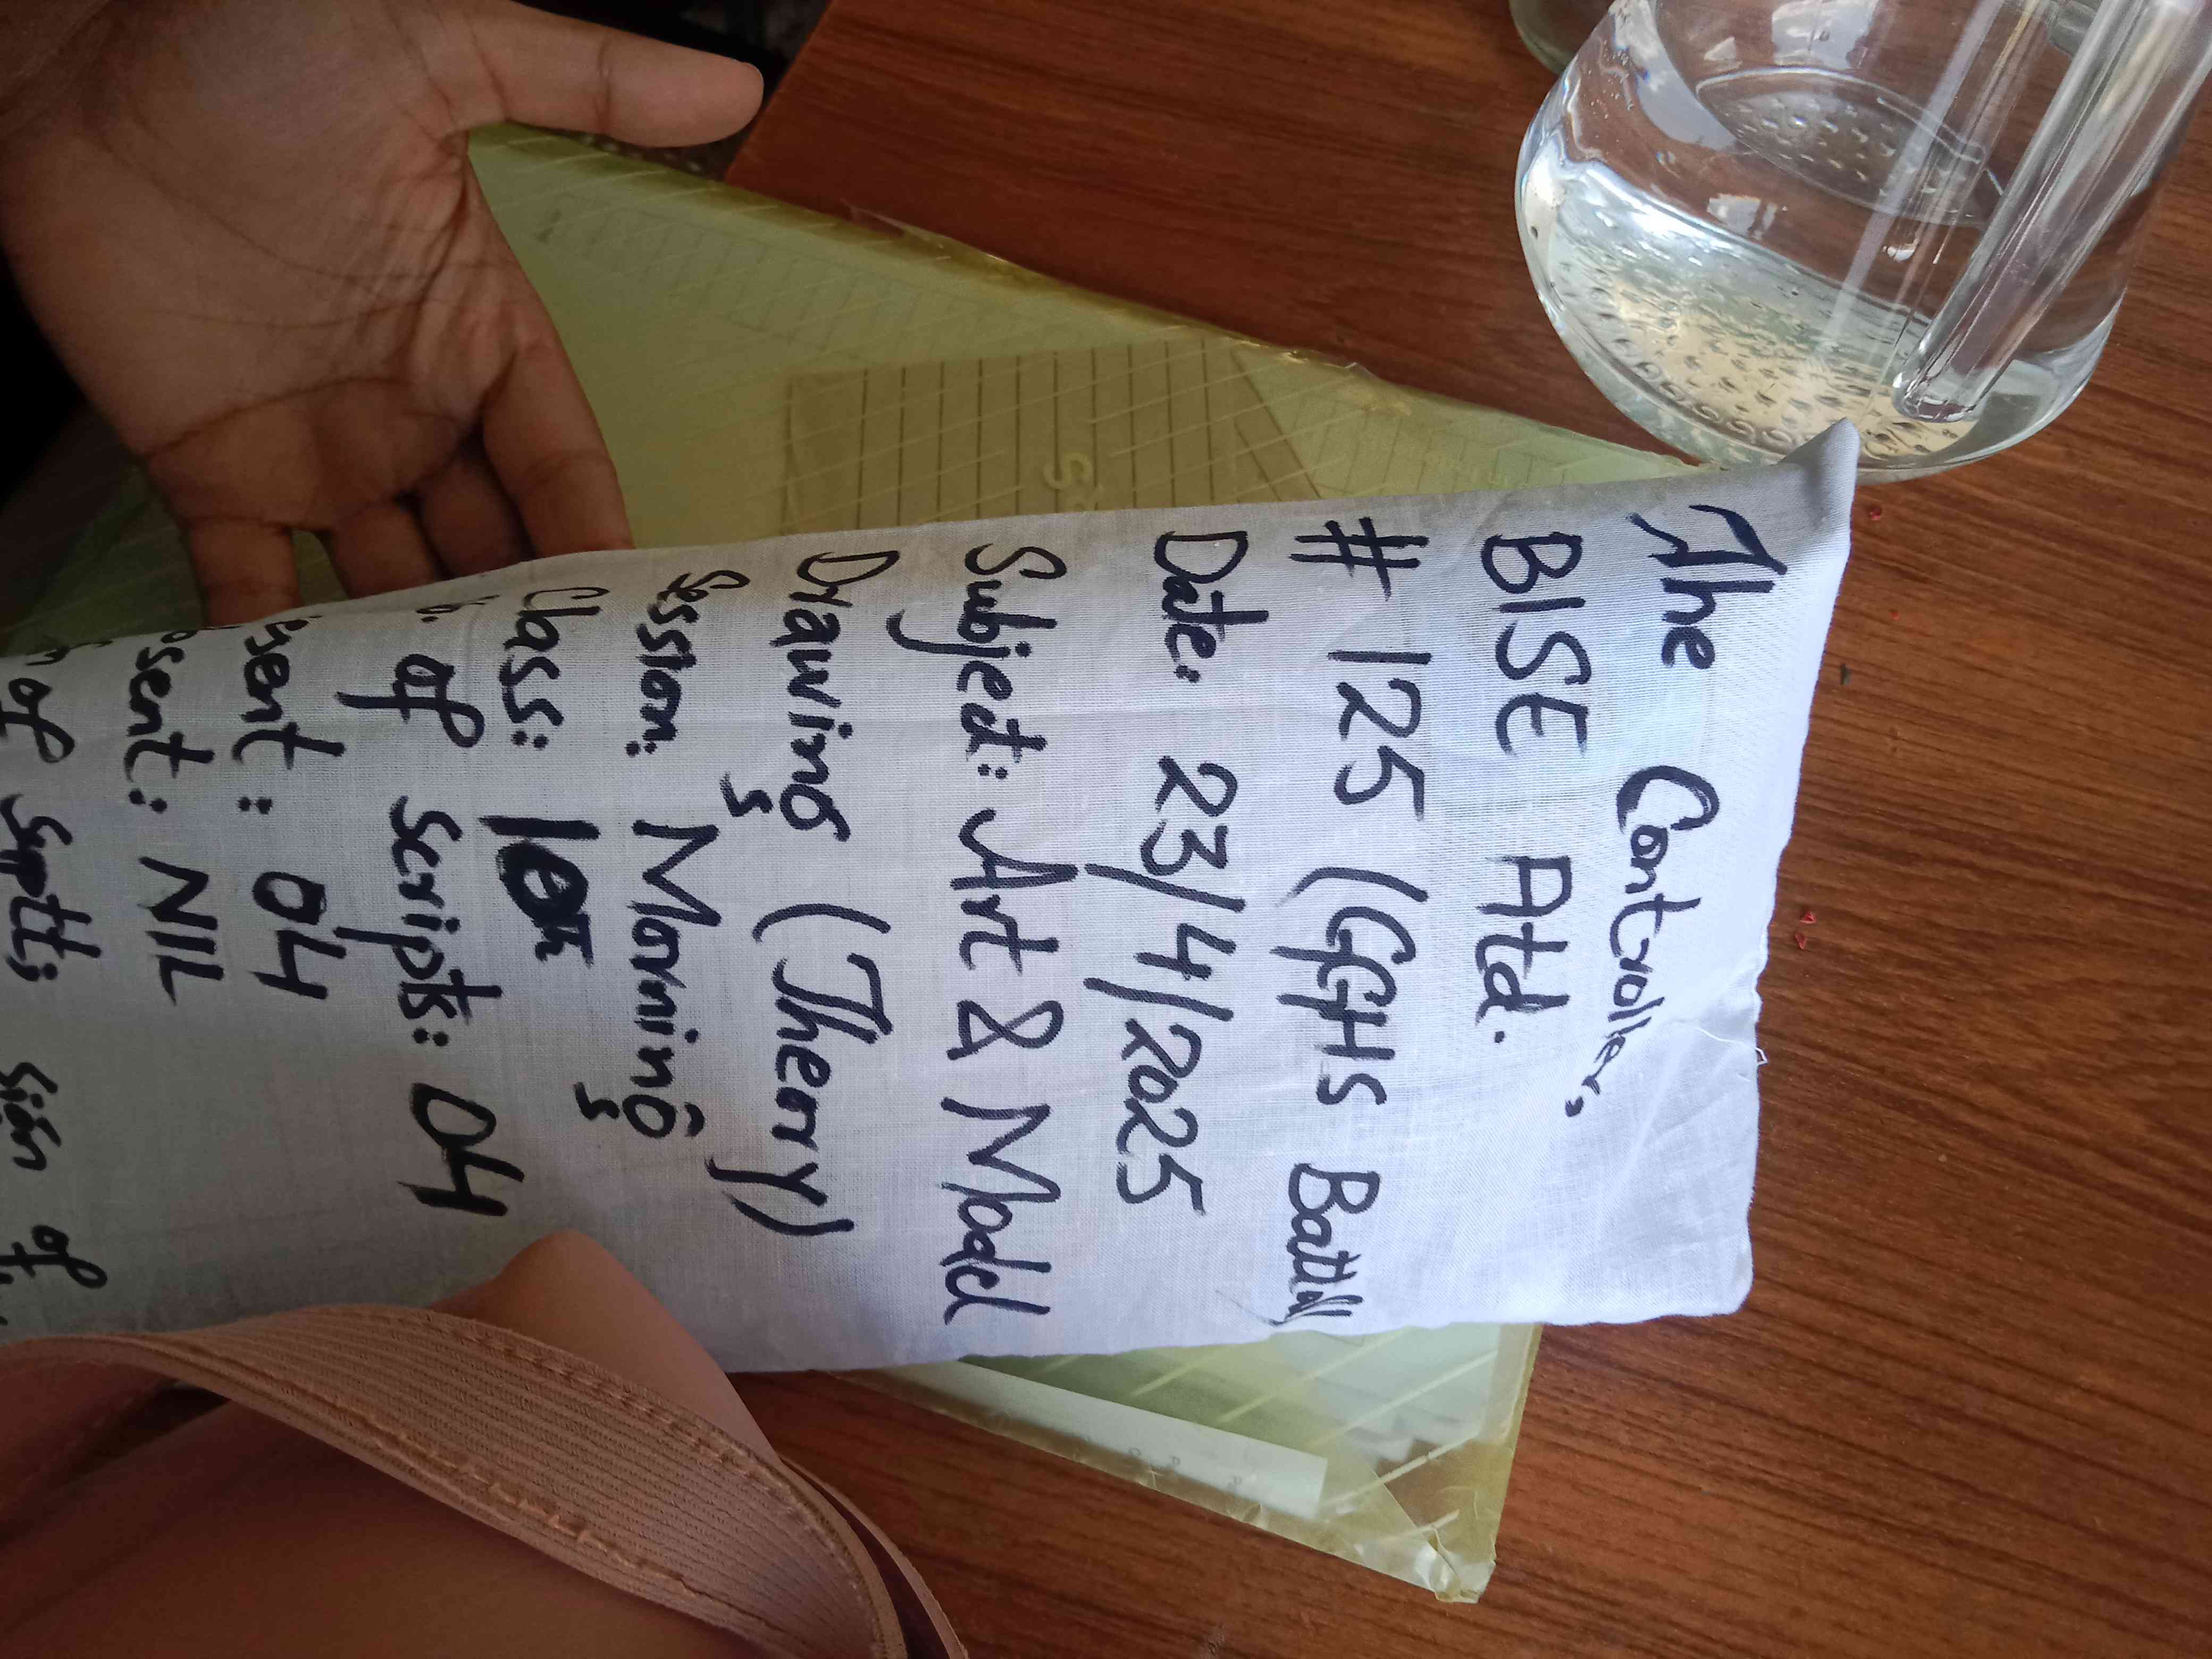 The Controller,
BISE Atd.
# 125 (GGHS Battal
Date: 23/4/2025
Subject: Art & Model
Drawing (Theory)
Session: Morning
Class: 10th
of Scripts: 04
esent: 04
sent: NIL
of Suptt; Sign of